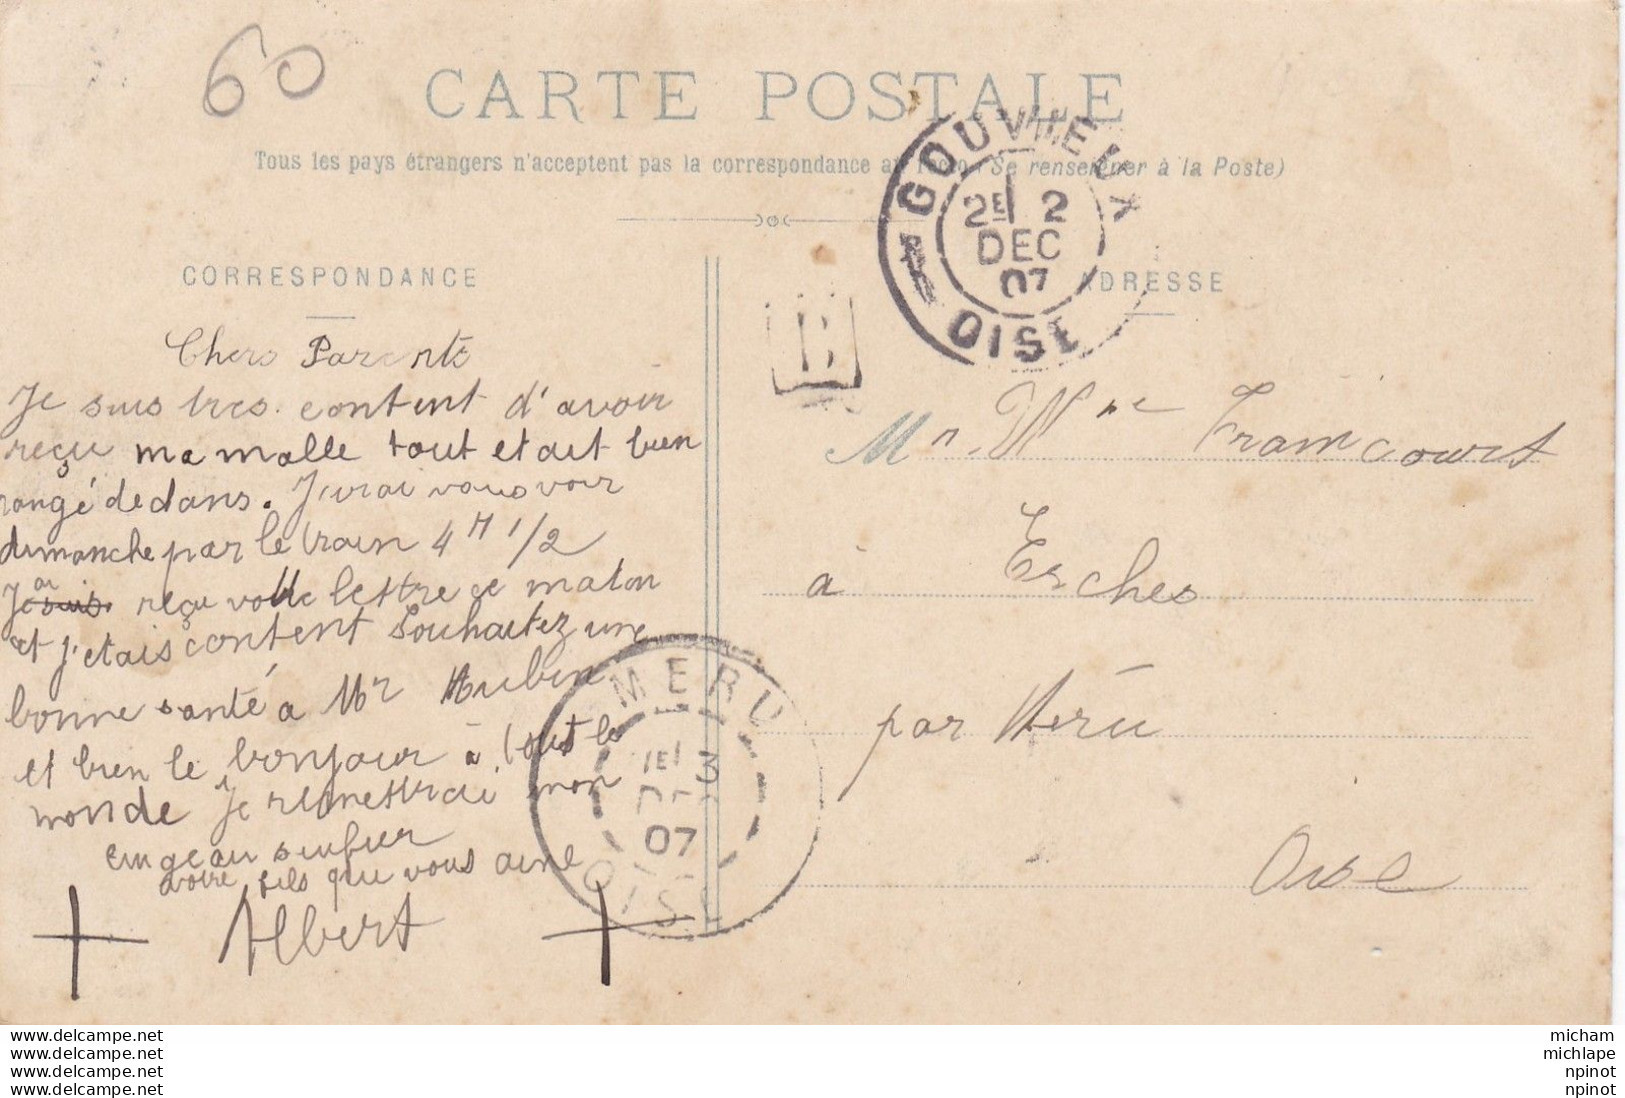 60
CARTE POSTALE
Tous les pays étrangers n'acceptent pas la correspondance au recto (Se renseigner à la Poste)
GOUVIEUX
2E 2
DEC
07
OISE
B
CORRESPONDANCE
ADRESSE
Chers Parents
Je suis tres content d'avoir
reçu ma malle tout etait bien
rangé dedans. J'irai vous voir
dimanche par le train 4 H 1/2
J'ai reçu votre lettre ce matin
et j'etais content Souhaitez une
bonne santé à Mr Aubin
et bien le bonjour à tout le
monde Je remettrai mon
linge au
votre fils qui vous aime
Albert
Mr. Mme Framcourt
à Erches
par Méru
Oise
MERU
1E 3
DEC
07
OISE
www.delcampe.net
www.delcampe.net
www.delcampe.net
www.delcampe.net
micham
michlape
npinot
npinot